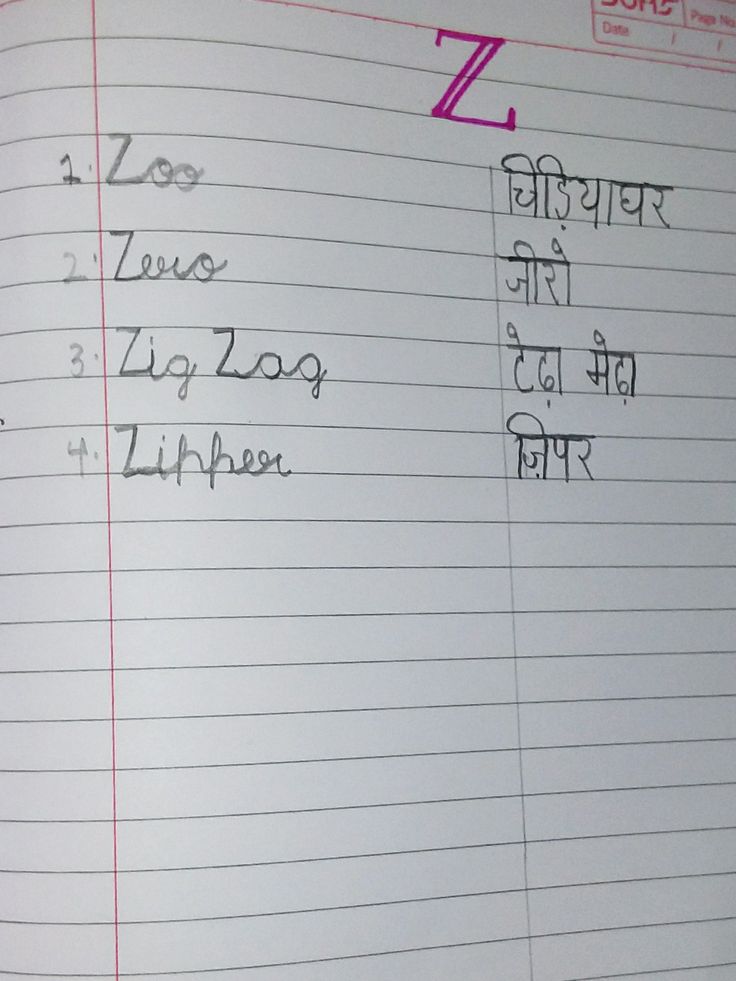 Page No.
Date / /
Z
1. Zoo चिड़ियाघर
2. Zero जीरो
3. Zig Zag टेढ़ा मेढ़ा
4. Zipper ज़िपर